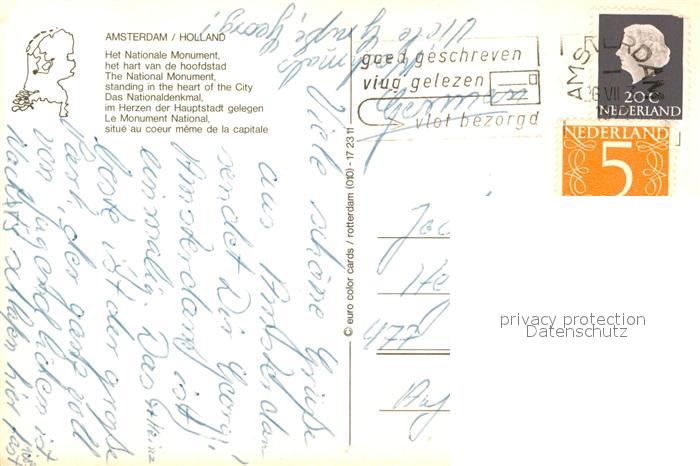 AMSTERDAM / HOLLAND
Het Nationale Monument,
het hart van de hoofdstad
The National Monument,
standing in the heart of the City
Das Nationaldenkmal,
im Herzen der Hauptstadt gelegen
Le Monument National,
situé au coeur même de la capitale
© euro color cards / rotterdam (010) - 17 23 11
goed geschreven
vlug gelezen
vlot bezorgd
AMSTERDAM
16 VII
20 C
NEDERLAND
NEDERLAND
5
Viele schöne Grüße
aus Amsterdam
sendet Dir Georg!
Amsterdam ist
einmalig. Das
beste ist der große
Park, der ganz voll
von Jugendlichen ist.
nachts schlafen hier fast
Viele Grüße, Georg!
477
privacy protection
Datenschutz